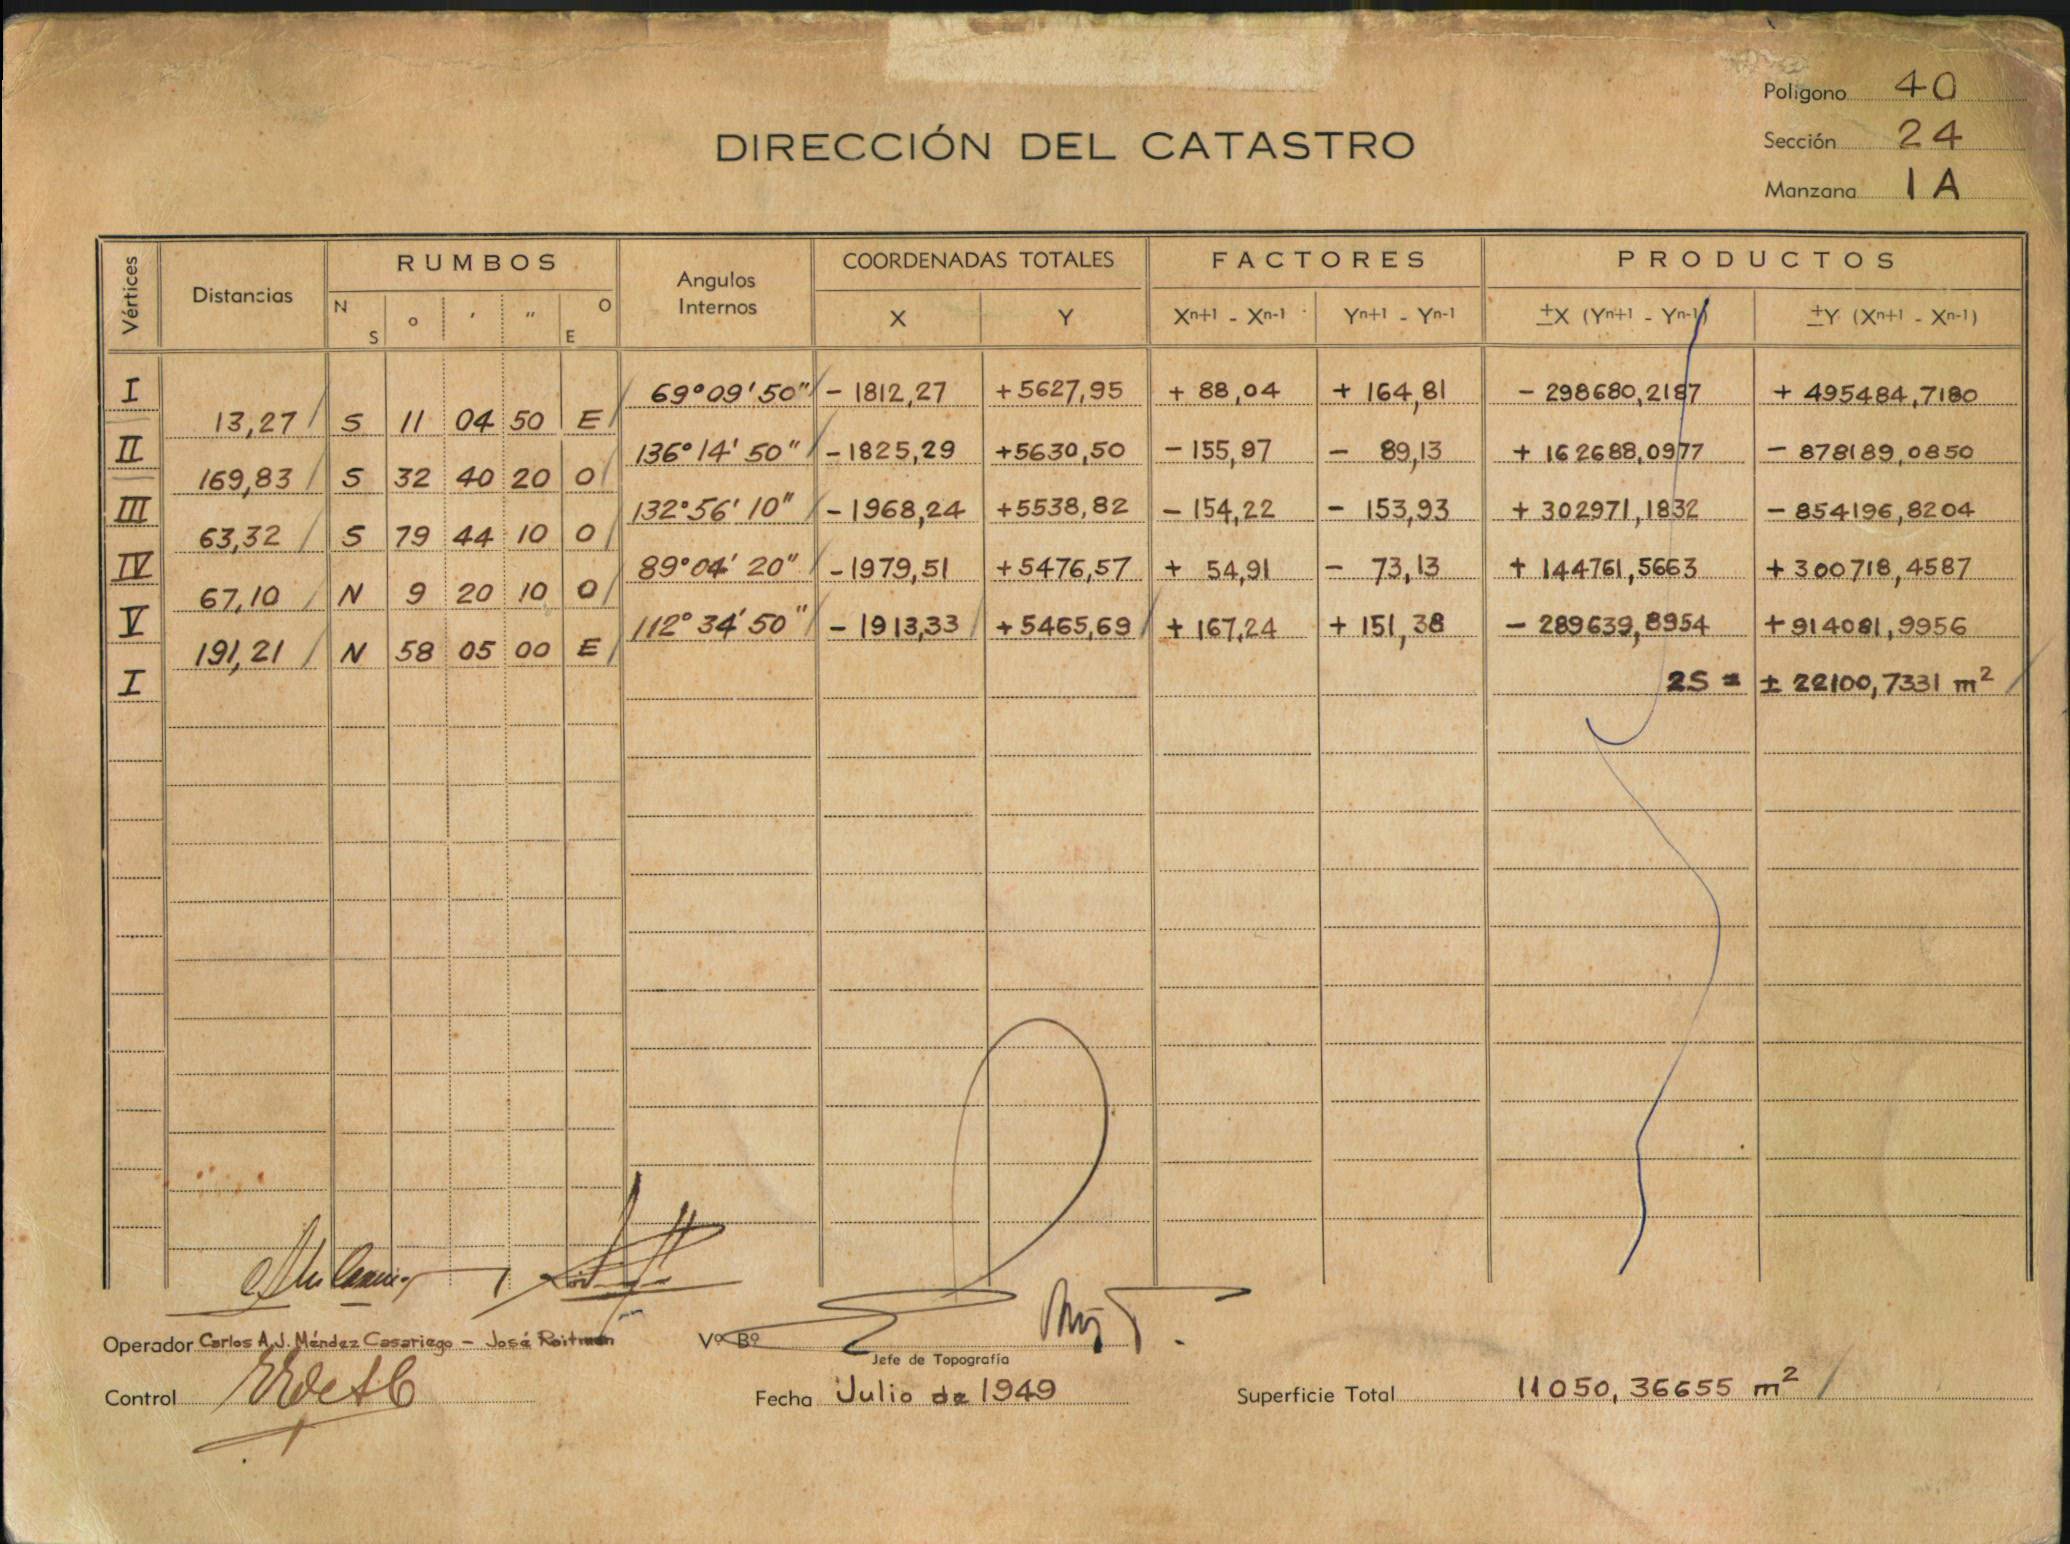 Polígono 40
DIRECCIÓN DEL CATASTRO
Sección 24
Manzana 1 A
Vértices Distancias RUMBOS Angulos Internos COORDENADAS TOTALES FACTORES PRODUCTOS
N S o ' " O E X Y Xn+1 - Xn-1 Yn+1 - Yn-1 ±X (Yn+1 - Yn-1) ±Y (Xn+1 - Xn-1)
I 69°09'50" - 1812,27 +5627,95 + 88,04 + 164,81 - 298680,2187 + 495484,7180
13,27 S 11 04 50 E
II 136°14'50" -1825,29 +5630,50 -155,97 - 89,13 + 162688,0977 - 878189,0850
169,83 S 32 40 20 O
III 132°56'10" - 1968,24 +5538,82 - 154,22 - 153,93 + 302971,1832 - 854196,8204
63,32 S 79 44 10 O
IV 89°04'20" -1979,51 +5476,57 + 54,91 - 73,13 + 144761,5663 +300718,4587
67,10 N 9 20 10 O
V 112°34'50" - 1913,33 +5465,69 + 167,24 + 151,38 - 289639,8954 +914081,9956
191,21 N 58 05 00 E
I 2S = ± 22100,7331 m²
Operador Carlos A.J. Méndez Casariego - José Roitman Vº Bº
Jefe de Topografía
Control Fecha Julio de 1949 Superficie Total 11050,36655 m²